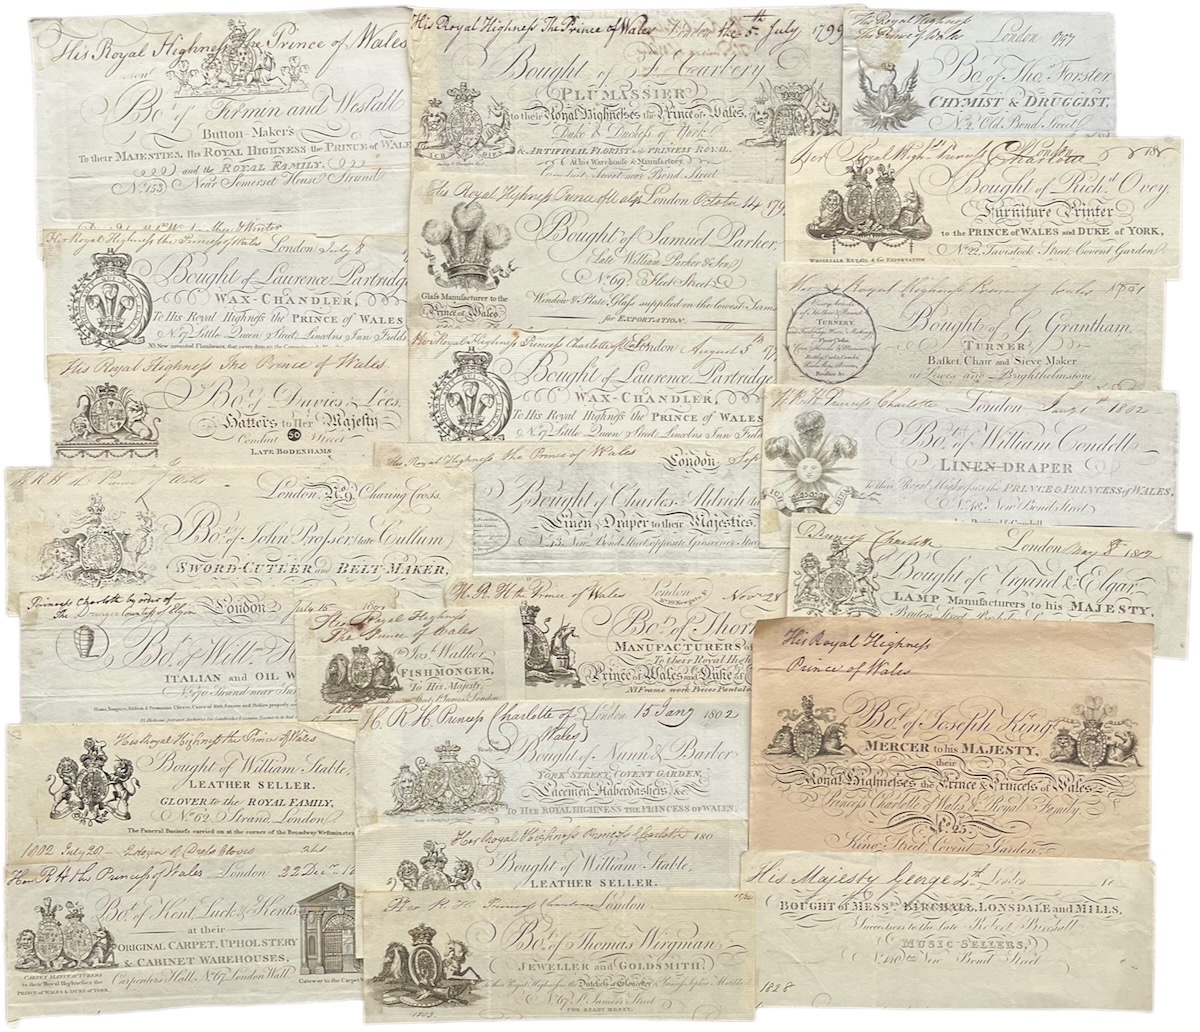 His Royal Highness The Prince of Wales
Bot. of Firmin and Westall
Button Makers
To their MAJESTIES, His ROYAL HIGHNESS the PRINCE of WALE
and the ROYAL FAMILY.
No. 153, Near Somerset House Strand
Her Royal Highness the Princess of Wales London July 8
Bought of Laurence Partridg
WAX-CHANDLER,
To His Royal Highness the PRINCE of WALES
No. 17 Little Queen Street, Lincolns Inn Fields
His Royal Highness The Prince of Wales
Bot. of Davies & Lees,
Hatters to Her Majesty
Conduit 50 Street
LATE BODENHAMS
H R H the Prince of Wales
London, No. 9, Charing Cross,
Bot. of John Prosser (late Cullum)
SWORD-CUTLER and BELT-MAKER,
Princess Charlotte by order of
The Dowager Countess of Elgin
London July 15
Bot. of Willm. H
ITALIAN and OIL W
No. 170 Strand near
His Royal Highness the Prince of Wales
Bought of William Stable,
LEATHER SELLER.
GLOVER to the ROYAL FAMILY,
No. 62, Strand, London
The Funeral Business carried on at the corner of the Broadway Westminster
1802 July 20
Her R H the Princess of Wales London 22 Decr.
Bot. of Kent, Luck & Kents,
at their
ORIGINAL CARPET, UPHOLSTERY
& CABINET WAREHOUSES,
Carpenters Hall, No. 67 London Wall.
CARPET MANUFACTURERS
to their Royal Highnesses the
PRINCE of WALES & DUKE of YORK.
Gateway to the Carpet
His Royal Highness The Prince of Wales London the 5th July 1799
Bought of J. Carbery
PLUMASSIER
to their Royal Highnesses the Prince of Wales,
Duke & Duchess of York,
& ARTIFICIAL FLORIST to the PRINCESS ROYAL,
At his Warehouse & Manufactory,
Conduit Street near Bond Street
ICH DIEN
His Royal Highness Prince of Wales London October 14 179
Bought of Samuel Parker,
(Late William Parker & Son)
No. 69, Fleet Street
Window & Plate Glass supplied on the lowest Terms
for EXPORTATION.
Glass Manufacturer to the
Prince of Wales
Her Royal Highness Princess Charlotte London August 5th
Bought of Laurence Partridge
WAX-CHANDLER,
To His Royal Highness the PRINCE of WALES
No. 17 Little Queen Street, Lincolns Inn Field
His Royal Highness the Prince of Wales
London Sep
Bought of Charles Aldrich
Linen Draper to their Majesties.
No. 13, New Bond Street opposite Grosvenor Street
H. R. H the Prince of Wales London Novr 28
Bot. of Thorn
MANUFACTURERS of
To their Royal High
Prince of Wales and Duke of
NB Frame work Pieces Pantal
His Royal Highness
The Prince of Wales
to Jos. Walther
FISHMONGER,
To His Majesty,
H. R H Princess Charlotte of Wales London 15 Jany 1802
Bought of Nunn & Barber
YORK STREET, COVENT GARDEN,
Lacemen, Haberdashers, &c
To HER ROYAL HIGHNESS the PRINCESS of WALES.
Her Royal Highness Princess Charlotte 180
Bought of William Stable,
LEATHER SELLER.
Her R. H. Princess Charlotte London.
Bot. of Thomas Wirgman
JEWELLER and GOLDSMITH,
to their Royal Highnesses the Dutchess of Gloucester & Princess Sophia Matilda
No. 67 St. James's Street
FOR READY MONEY.
1803
His Royal Highness
The Prince of Wales London 1797
Bot. of Thos. Forster
CHYMIST & DRUGGIST,
No. 2, Old Bond Street
Her Royal Highss. Princess Charlotte London
Bought of Richd. Ovey,
Furniture Printer
to the PRINCE of WALES and DUKE of YORK,
No. 22, Tavistock Street, Covent Garden
WHOLESALE, RETAIL & for EXPORTATION
Bought of G. Grantham
TURNER
Basket, Chair and Sieve Maker
at Lewes and Brighthelmstone
TURNERY,
H. R. H. Princess Charlotte London Jany 1st 1802
Bot. of William Condell
LINEN-DRAPER
To their Royal Highnesses the PRINCE & PRINCESS of WALES,
No. 48, New Bond Street
Princess Charlotte London May 8th 1802
Bought of Argand & Elgar,
LAMP Manufacturers to his MAJESTY,
His Royal Highness
Prince of Wales
Bot. of Joseph King,
MERCER to his MAJESTY,
their
Royal Highnesses the Prince & Princess of Wales
Princess Charlotte of Wales & Royal Family.
No. 25.
King Street, Covent Garden.
His Majesty George 4th London
BOUGHT of MESSrs. BIRCHALL, LONSDALE and MILLS,
Successors to the late Robert Birchall
MUSIC SELLERS,
No. 140 New Bond Street
1828